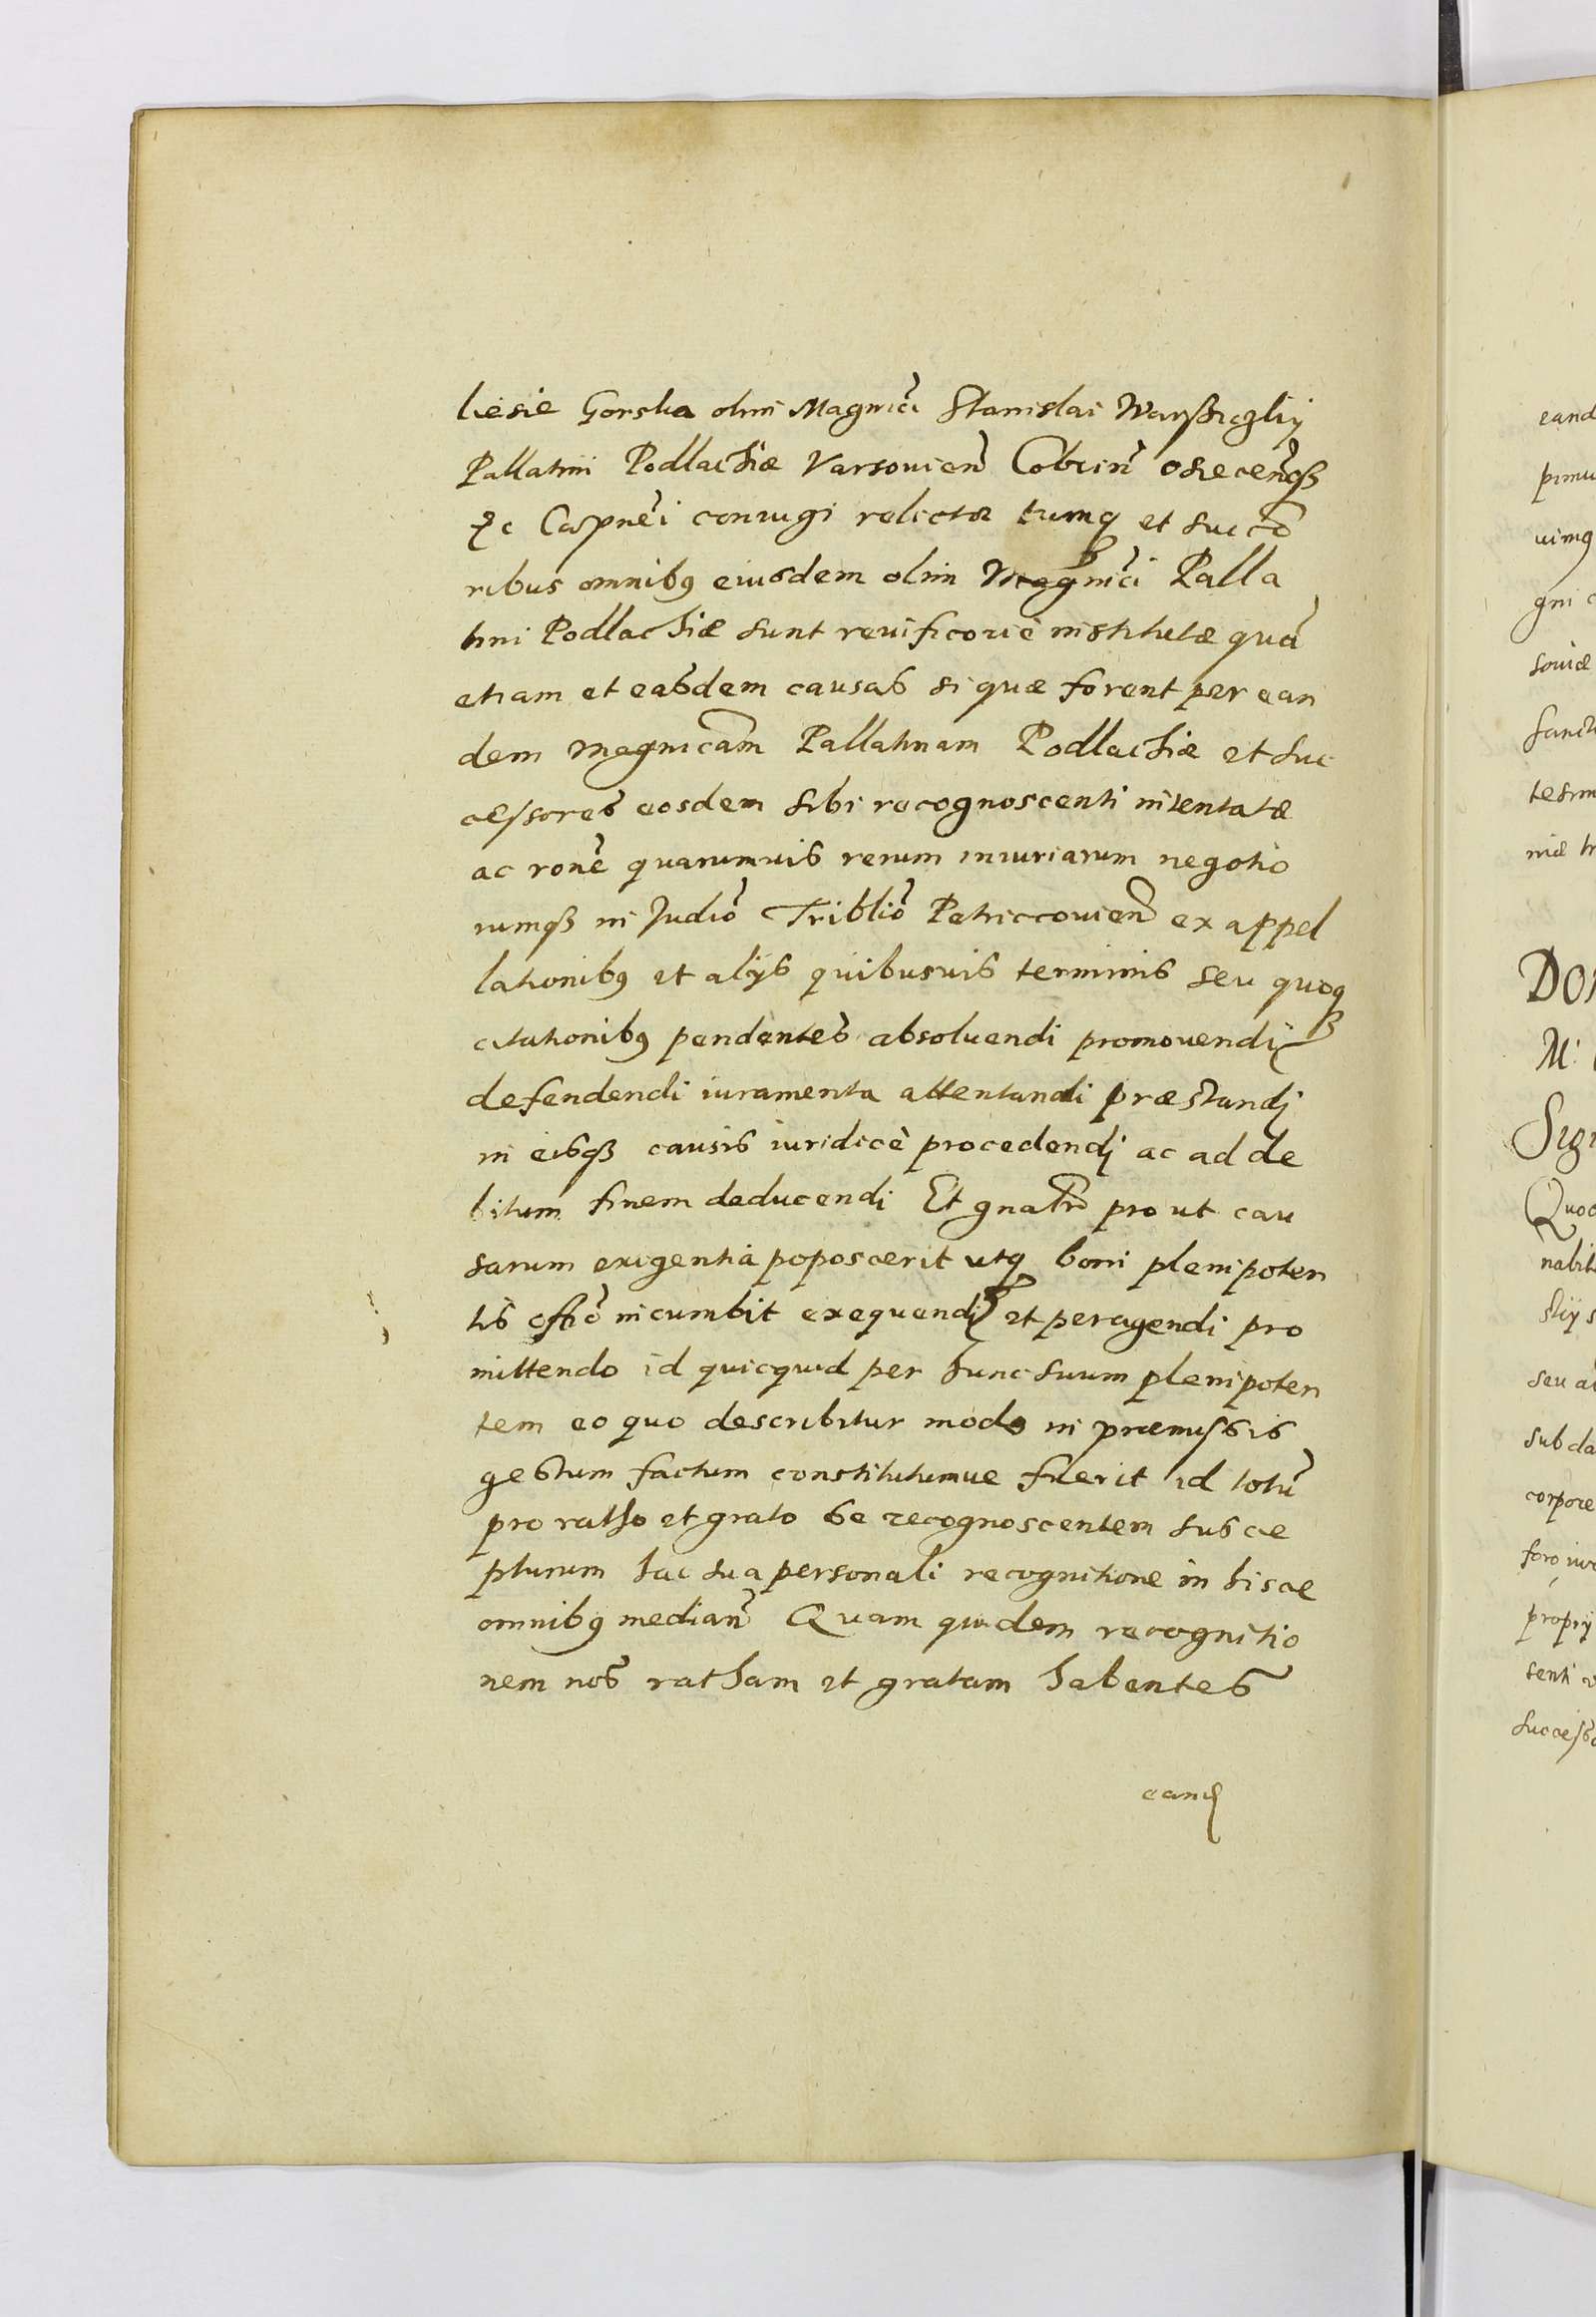 liesie Gorska olim Magnici Stanislai Warßiczkij
Pallatini Podlachiæ Varsovien Cobrin osiecenqß
&c Capnei coniugi relictæ tumq et succo
ribus omnibus eiusdem olim Magnici Palla
tini Podlachiæ sunt institutæ qua
etiam et easdem causas si quæ forent per ean
dem Magnicam Pallatinam Podlachiæ et suc
cessores eosdem sibi recognoscenti intentatæ
ac rone quarumvis rerum iniuriarum negotio
rumqß in Judio Triblio Petriccovien ex appel
lationibus et alijs quibusvis terminis seu quoq
citationibus pendentes absoluendi promouendi
defendendi iuramenta attentandi præstandj
in eisqß causis iuridicè procedendj ac ad de
bitum finem deducendi Et gnalr pro ut cau
sarum exigentia poposcerit utq boni plenipoten
tis offo incumbit exequendi et peragendi pro
mittendo id quicquid per hunc suum plenipoten
tem eo quo describitur modo in præmissis
gestum factum constitutumue fuerit id totu
pro ratho et grato se recognoscentem susce
pturum hac sua personali recognitione in hisce
omnibus median Quam quidem recognitio
nem nos ratham et gratam habentes
eand
eand
pimu
uimq
gni c
souiæ
sanct
tesim
niæ tr
DOI
M:
Sigi
Quod
nabil
skij s
seu a
sub da
corpore
foro iur
proprij
senti
success